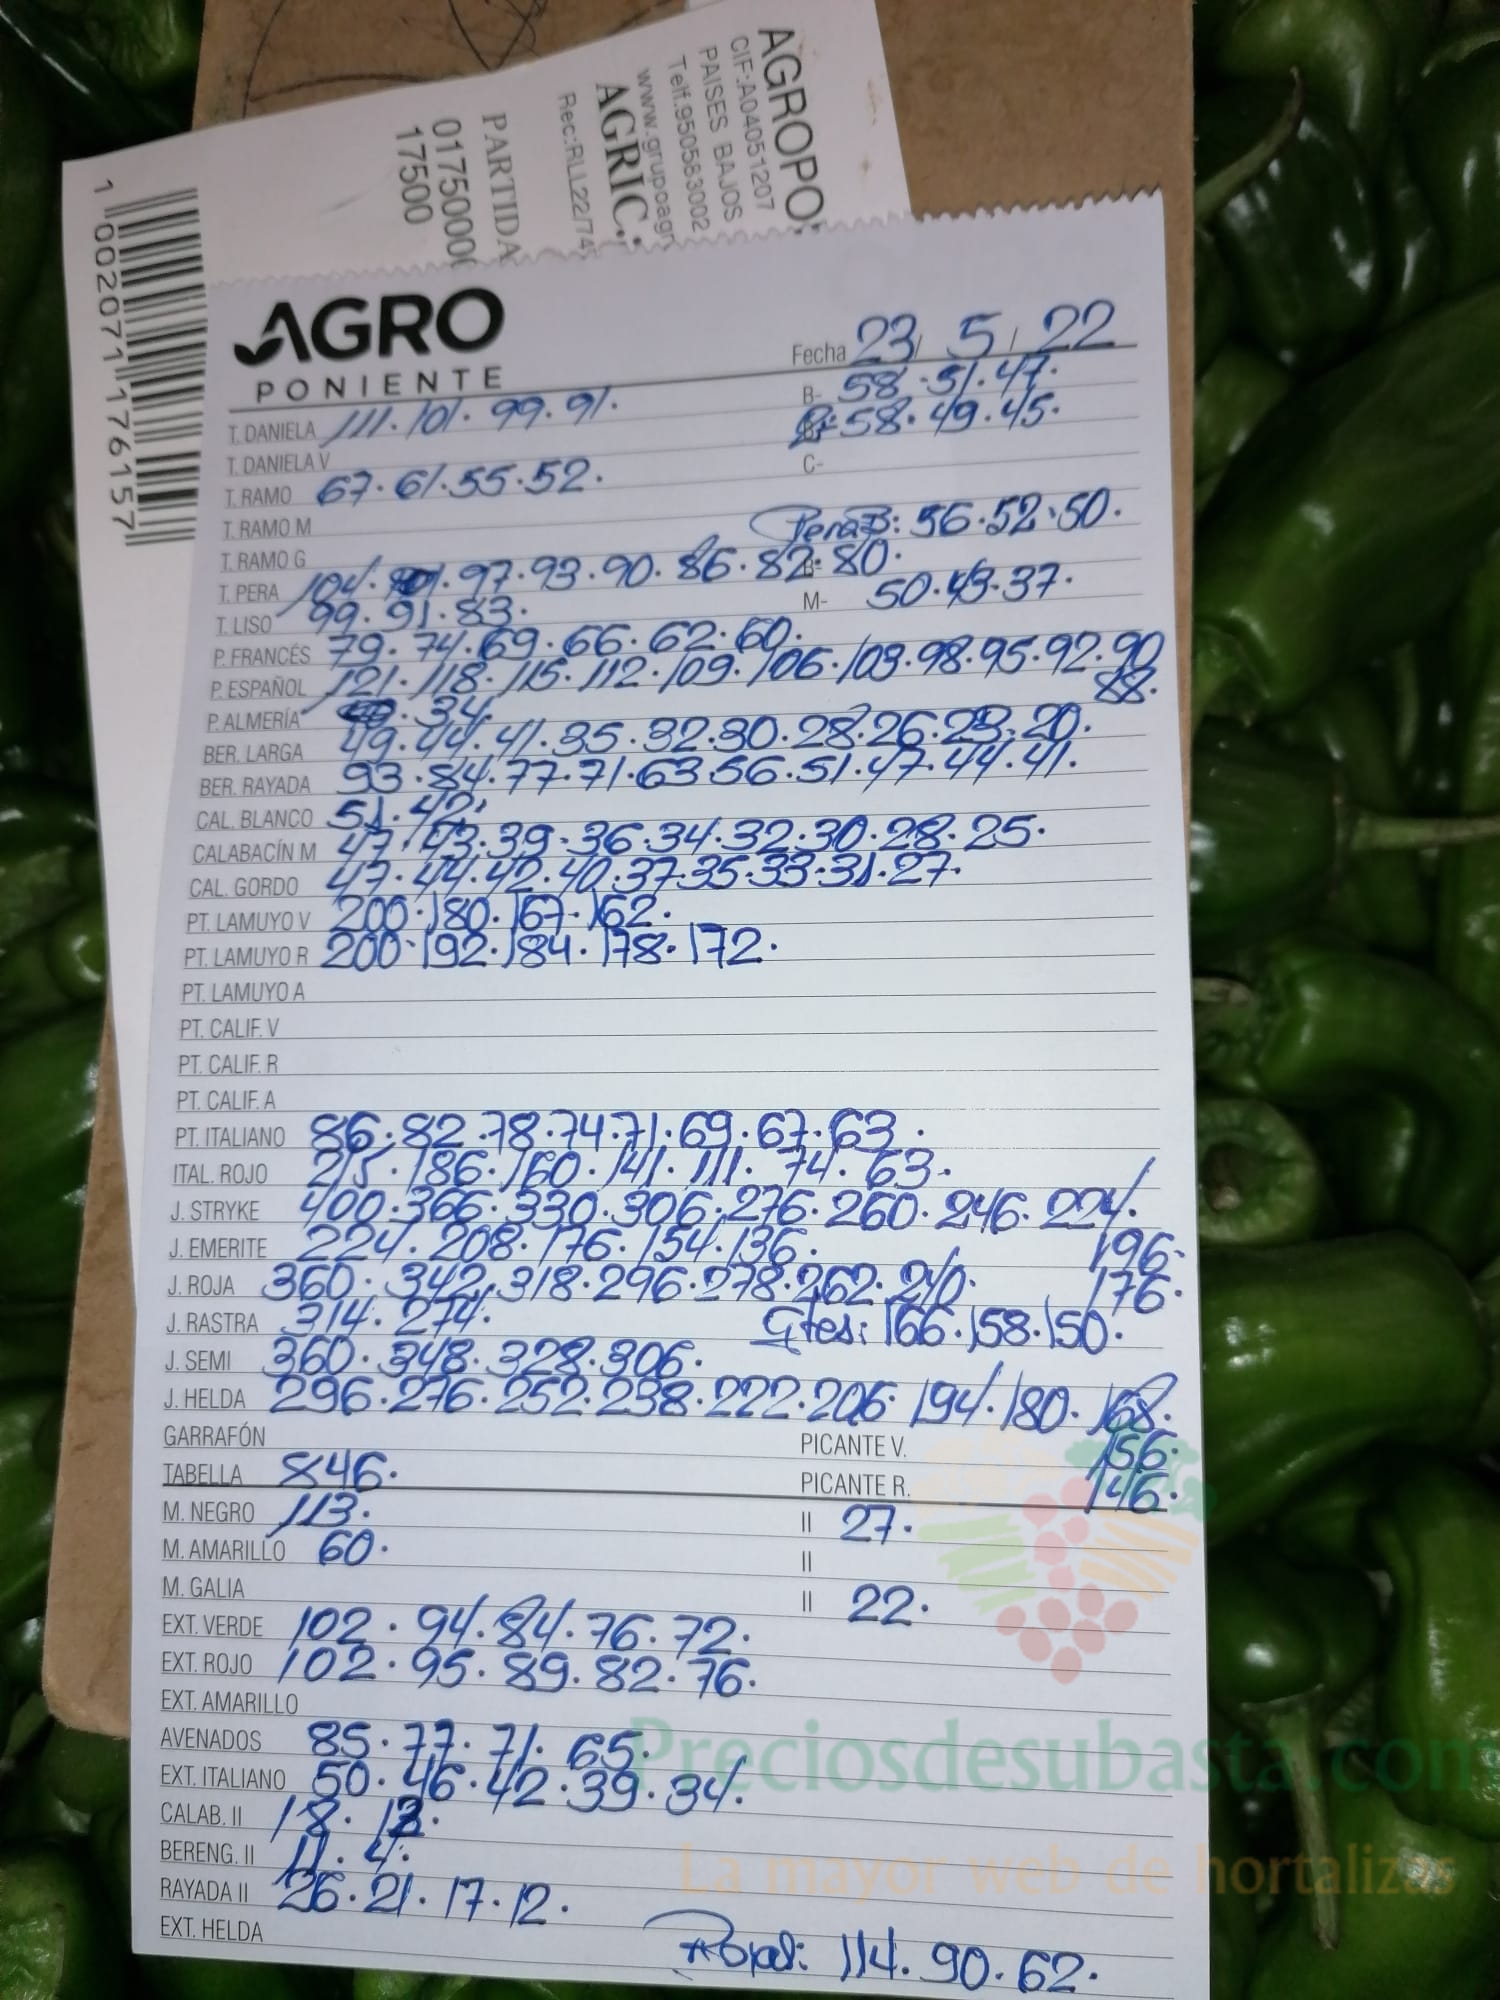 AGROPO
CIF:A04051207
PAISES BAJOS
Telf.950583002
www.grupoagr
AGRIC.:
Rec:RLL22/74
PARTIDA
0175000
17500
1 002071 176157
AGRO
PONIENTE
Fecha 23/ 5 / 22
T. DANIELA 111. 101. 99. 91. B- 58.51.47.
T. DANIELA V 58.49.45.
T. RAMO 67.61.55.52. C-
T. RAMO M Pera B: 56.52.50.
T. RAMO G
T. PERA 104. 101. 97. 93. 90. 86. 82. 80. B-
T. LISO 99. 91. 83. M- 50.43.37.
P. FRANCÉS 79. 74. 69. 66. 62. 60.
P. ESPAÑOL 121. 118. 115. 112. 109. 106. 103. 98. 95. 92. 90
88.
P. ALMERÍA 34.
BER. LARGA 49. 44. 41. 35. 32. 30. 28. 26. 23. 20.
BER. RAYADA 93. 84. 77. 71. 63. 56. 51. 47. 44. 41.
CAL. BLANCO 51. 42.
CALABACÍN M 47. 43. 39. 36. 34. 32. 30. 28. 25.
CAL. GORDO 47. 44. 42. 40. 37. 35. 33. 31. 27.
PT. LAMUYO V 200. 180. 167. 162.
PT. LAMUYO R 200. 192. 184. 178. 172.
PT. LAMUYO A
PT. CALIF. V
PT. CALIF. R
PT. CALIF. A
PT. ITALIANO 86. 82. 78. 74. 71. 69. 67. 63.
ITAL. ROJO 215. 186. 160. 141. 111. 74. 63.
J. STRYKE 400. 366. 330. 306. 276. 260. 246. 224.
J. EMERITE 224. 208. 176. 154. 136. 196.
J. ROJA 360. 342. 318. 296. 278. 262. 240. 176.
J. RASTRA 314. 274. Gtes: 166. 158. 150.
J. SEMI 360. 348. 328. 306.
J. HELDA 296. 276. 252. 238. 222. 206. 194. 180. 168.
GARRAFÓN PICANTE V. 156.
TABELLA 846. PICANTE R. 146.
M. NEGRO 113. II 27.
M. AMARILLO 60. II
M. GALIA II 22.
EXT. VERDE 102. 94. 84. 76. 72.
EXT. ROJO 102. 95. 89. 82. 76.
EXT. AMARILLO
AVENADOS 85. 77. 71. 65.
Preciosdesubasta.com
EXT. ITALIANO 50. 46. 42. 39. 34.
CALAB. II 18.
BERENG. II 11. 4.
La mayor web de hortalizas
RAYADA II 26. 21. 17. 12.
EXT. HELDA
114. 90. 62.